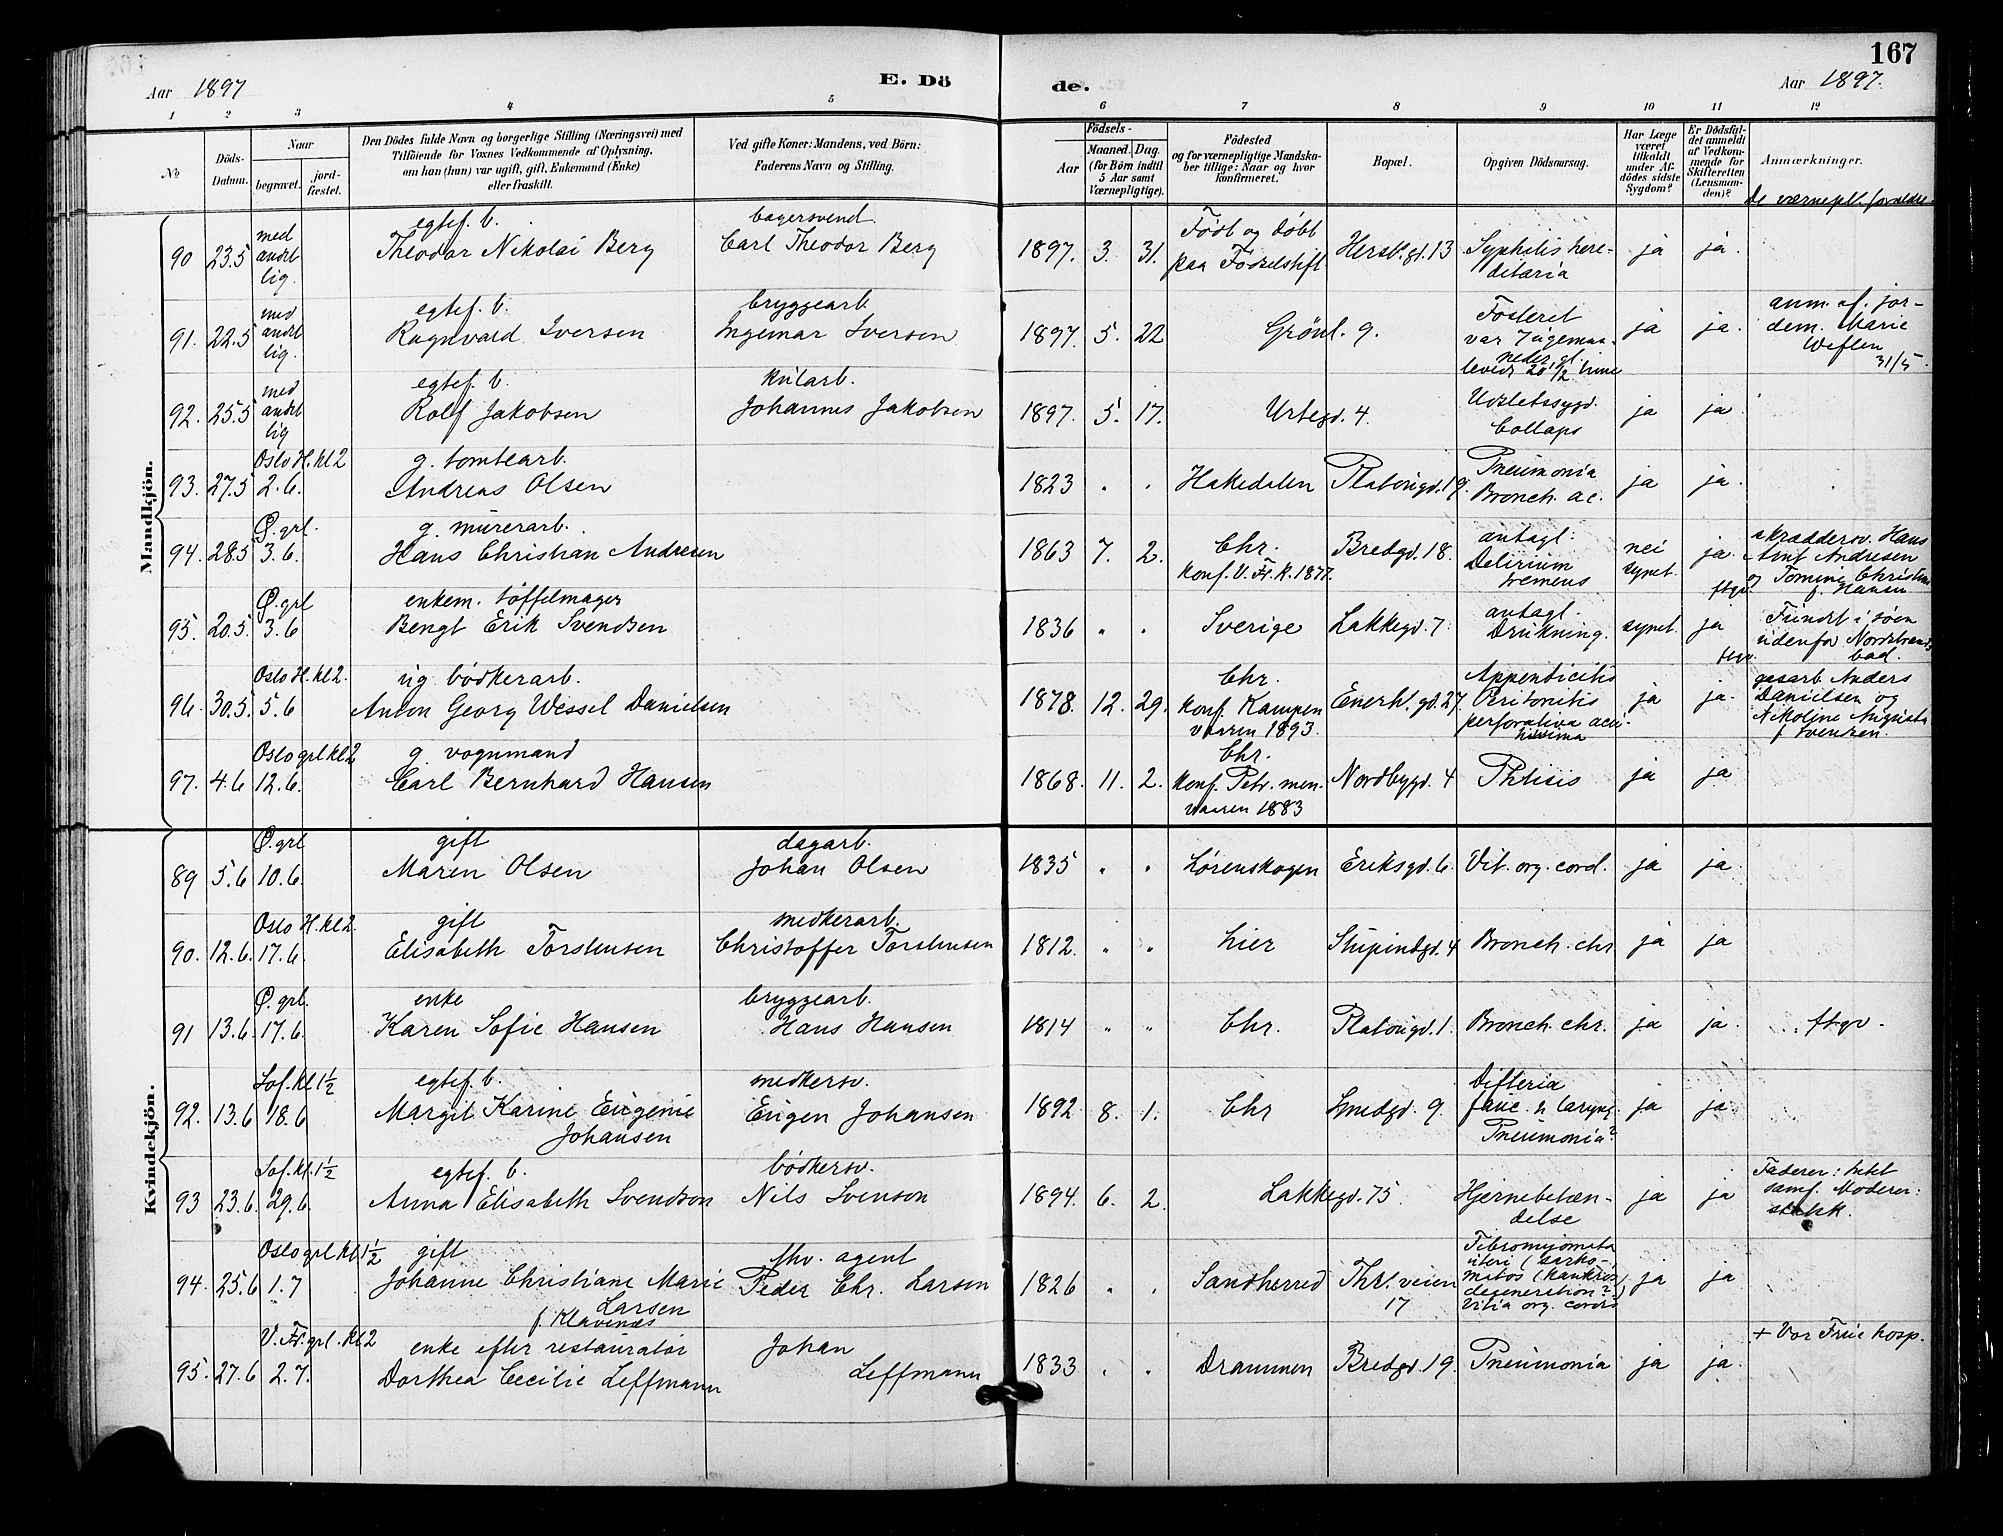 167
Aar 1897
E. Döde.
Aar 1897.
1 2 3 4 5 6 7 8 9 10 11 12
No
Döds-Datum.
Naar
begravet.
jordfæstet.
Den Dödes fulde Navn og borgerlige Stilling (Næringsvei) med
Tilföiende for Voxnes Vedkommende af Oplysning,
om han (hun) var ugift, gift, Enkemand (Enke)
eller fraskilt.
Ved gifte Koner: Mandens, ved Börn:
Faderens Navn og Stilling.
Födsels-
Aar
Maaned. Dag.
(for Börn indtil
5 Aar samt
Værnepligtige).
Födested
og for værnepligtige Mandska-
ber tillige: Naar og hvor
konfirmeret.
Bopæl.
Opgiven Dödsaarsag.
Har Læge
været
tilkaldt
under Af-
dödes sidste
Sygdom?
Er Dödsfal-
det anmeldt
af Vedkom-
mende for
Skifteretten
(Lensman-
den)?
Anmærkninger.
De værnepl. forældre
Mandkjön.
90 23.5 med andet lig. egtef. b. Theodor Nikolai Berg bagersvend Carl Theodor Berg 1897. 3. 31. Födt og döbt paa Födselstift. Hersl. gt. 13 Syphilis hereditaria ja ja.
91. 22.5 med andet lig. egtef. b. Ragnvald Iversen bryggearb. Ingemar Iversen 1897. 5. 22 Grönl. 9. Fosteret var 7 ugemaaneder gl. levede 20 1/2 time ja ja. anm. af. jordem. Marie Weflen 31/5.
92. 25.5 med andet lig egtef. b. Rolf Jakobsen kularb. Johannes Jakobsen 1897. 5. 17. Urtegd. 4. Udsletssygd. Collaps ja ja.
93. 27.5 Oslo H. kl 2 2.6. g. tomtearb. Andreas Olsen 1823 " " Hakedalen Platougd. 19. Pneumonia Bronch. ac. ja ja.
94. 28.5 Ø. grl. 3.6. g. murerarb. Hans Christian Andresen 1863 7. 2. Chr. konf. V. Fr. K. 1877. Bredgd. 18. antagl. Delirium tremens nei synet. ja. skræddersv. Hans Ant Andresen og Tomine Christine f. Hansen
95. 20.5. Ø. grl 3.6 enkem. töffelmager Bengt Erik Svendsen 1836 " " Sverige Lakkegd. 7. antagl. Drukning. synet. ja ftgv. Fundet i søen udenfor Nordstrands bad.
96. 30.5. Oslo H. kl 2. 5.6 ug. bödkerarb. Anton Georg Wessel Danielsen 1878. 12. 29. Chr. konf. Kampen vaaren 1893. Enerh. gd. 27. Appenticitis Peritonitis perforativa acutissima ja ja. gasarb. Anders Danielsen og Nikoline Augusta f. Svendsen.
97. 4.6 Oslo grl kl 2 12.6. g. vognmand Carl Bernhard Hansen 1868. 11. 2. Chr. konf. Petr. men. vaaren 1883 Nordbygd. 4 Phtisis ja ja
Kvindekjön.
89 5.6 Ø. grl 10.6. gift Maren Olsen dagarb. Johan Olsen 1835 " " Lörenskogen Eriksgd. 6. Vit. org. cord. ja ja
90. 12.6. Oslo H. kl 2. 17.6. gift Elisabeth Torstensen snedkerarb. Christoffer Torstensen 1812. " " hier Stupindgd. 4 Bronch. chr. ja ja
91 13.6 Ø. grl. 17.6. enke Karen Sofie Hansen bryggearb. Hans Hansen 1814 " " Chr. Platougd. 1. Bronch. chr. ja ja. ftgv.
92. 13.6 Sof. kl 1½ 18.6 egtef. b. Margit Karine Eugenie Johansen snedkersv. Eugen Johansen 1892 8. 1. Chr Smedgd. 9. Difteria fauc. & laryng. Pneumonia? ja ja
93 23.6. Sof. kl. 1½ 29.6. egtef. b. Anna Elisabeth Svendson bödkersv. Nils Svenson 1894. 6. 2. Lakkegd. 75. Hjernebetændelse ja ja Faderen: intet samf. Moderen: statsk.
94. 25.6 Oslo grl kl 1½ 1.7 gift Johanne Christiane Marie Larsen f. Klavenæs fhv. agent Peder Chr. Larsen 1826 " " Sandherred Thr. veien 17 Fibromyomata uteri (sarkomatos (kankrøs degeneration?) Vitia org. cordis ja ja
95. 27.6 V. Fr. grl. kl 2 2.7. enke efter restauratør Dorthea Cecilie Leffmann Johan Leffmann 1833 " " Drammen Bredgd. 19. Pneumonia ja ja. + Vor Frue hosp.